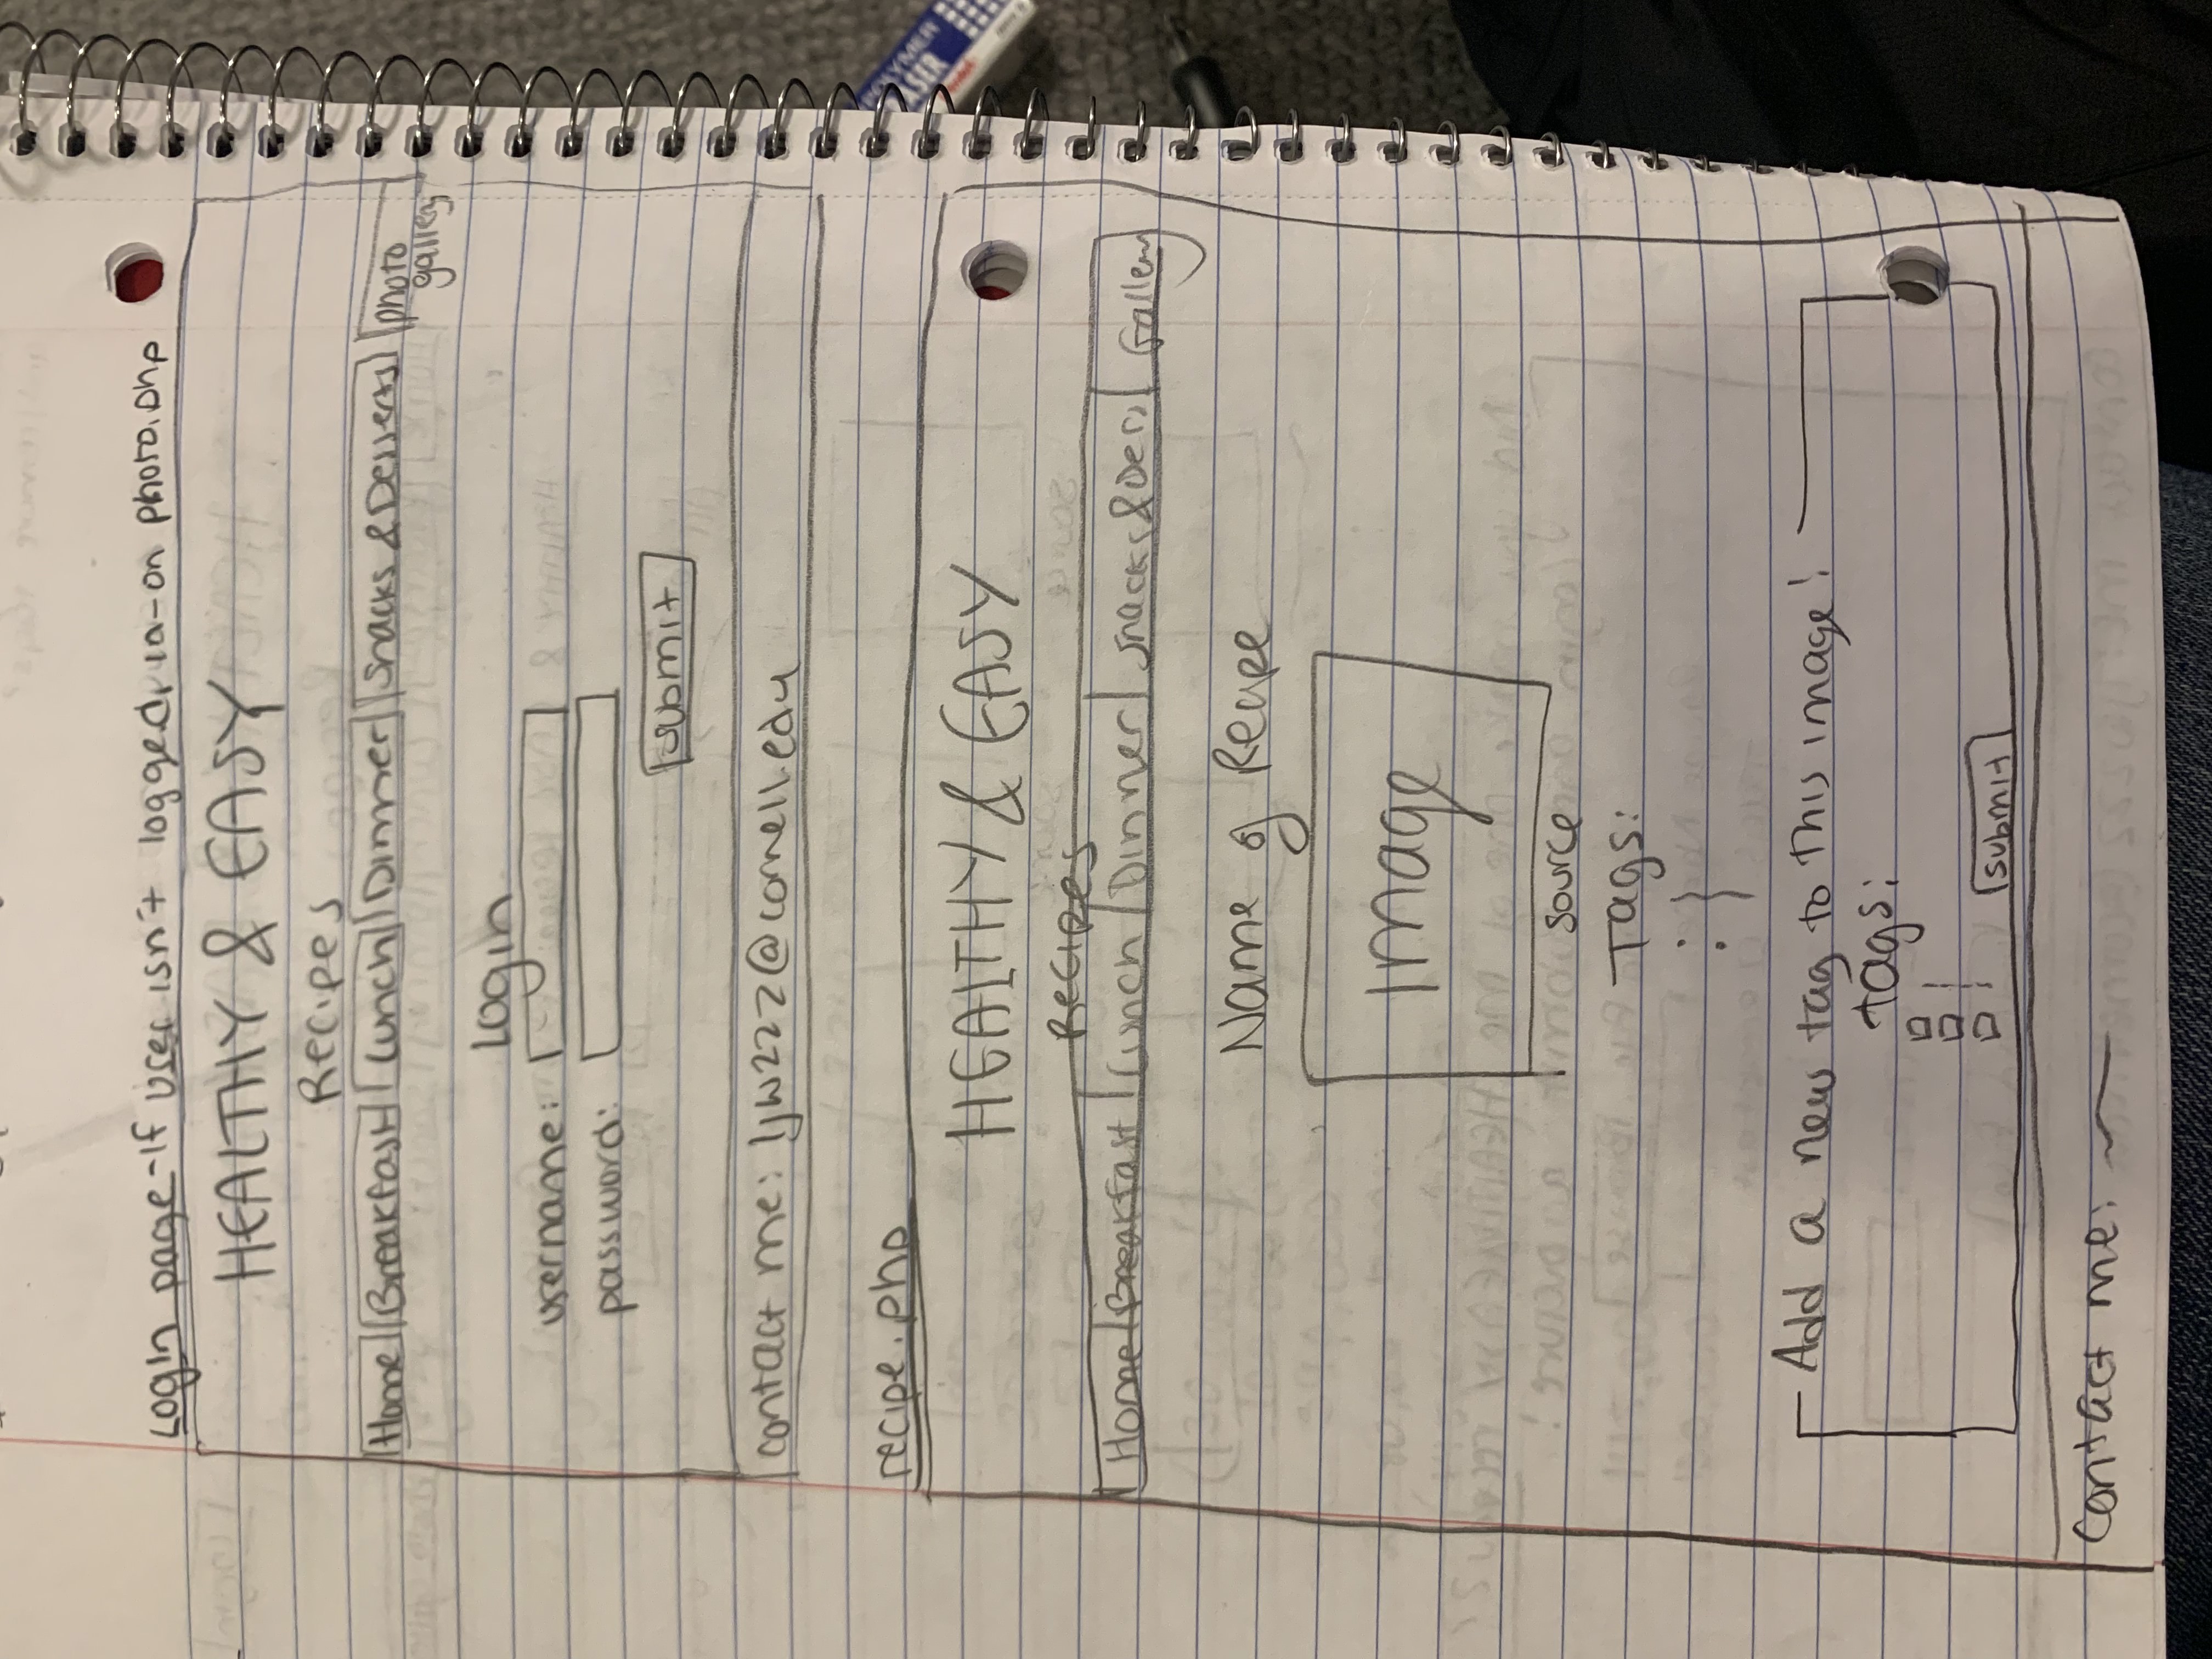 Login page - if user isn't logged in - on photo.php
HEALTHY & EASY
Recipes
Home Breakfast Lunch Dinner Snacks & Desserts photo gallery
Login
username:
password:
submit
contact me: ljw222@cornell.edu
recipe.php
HEALTHY & EASY
Recipes
Home Breakfast Lunch Dinner Snacks & Des Gallery
Name of Recipe
Image
source
Tags:
Add a new tag to this image!
tags:
submit
Contact me: